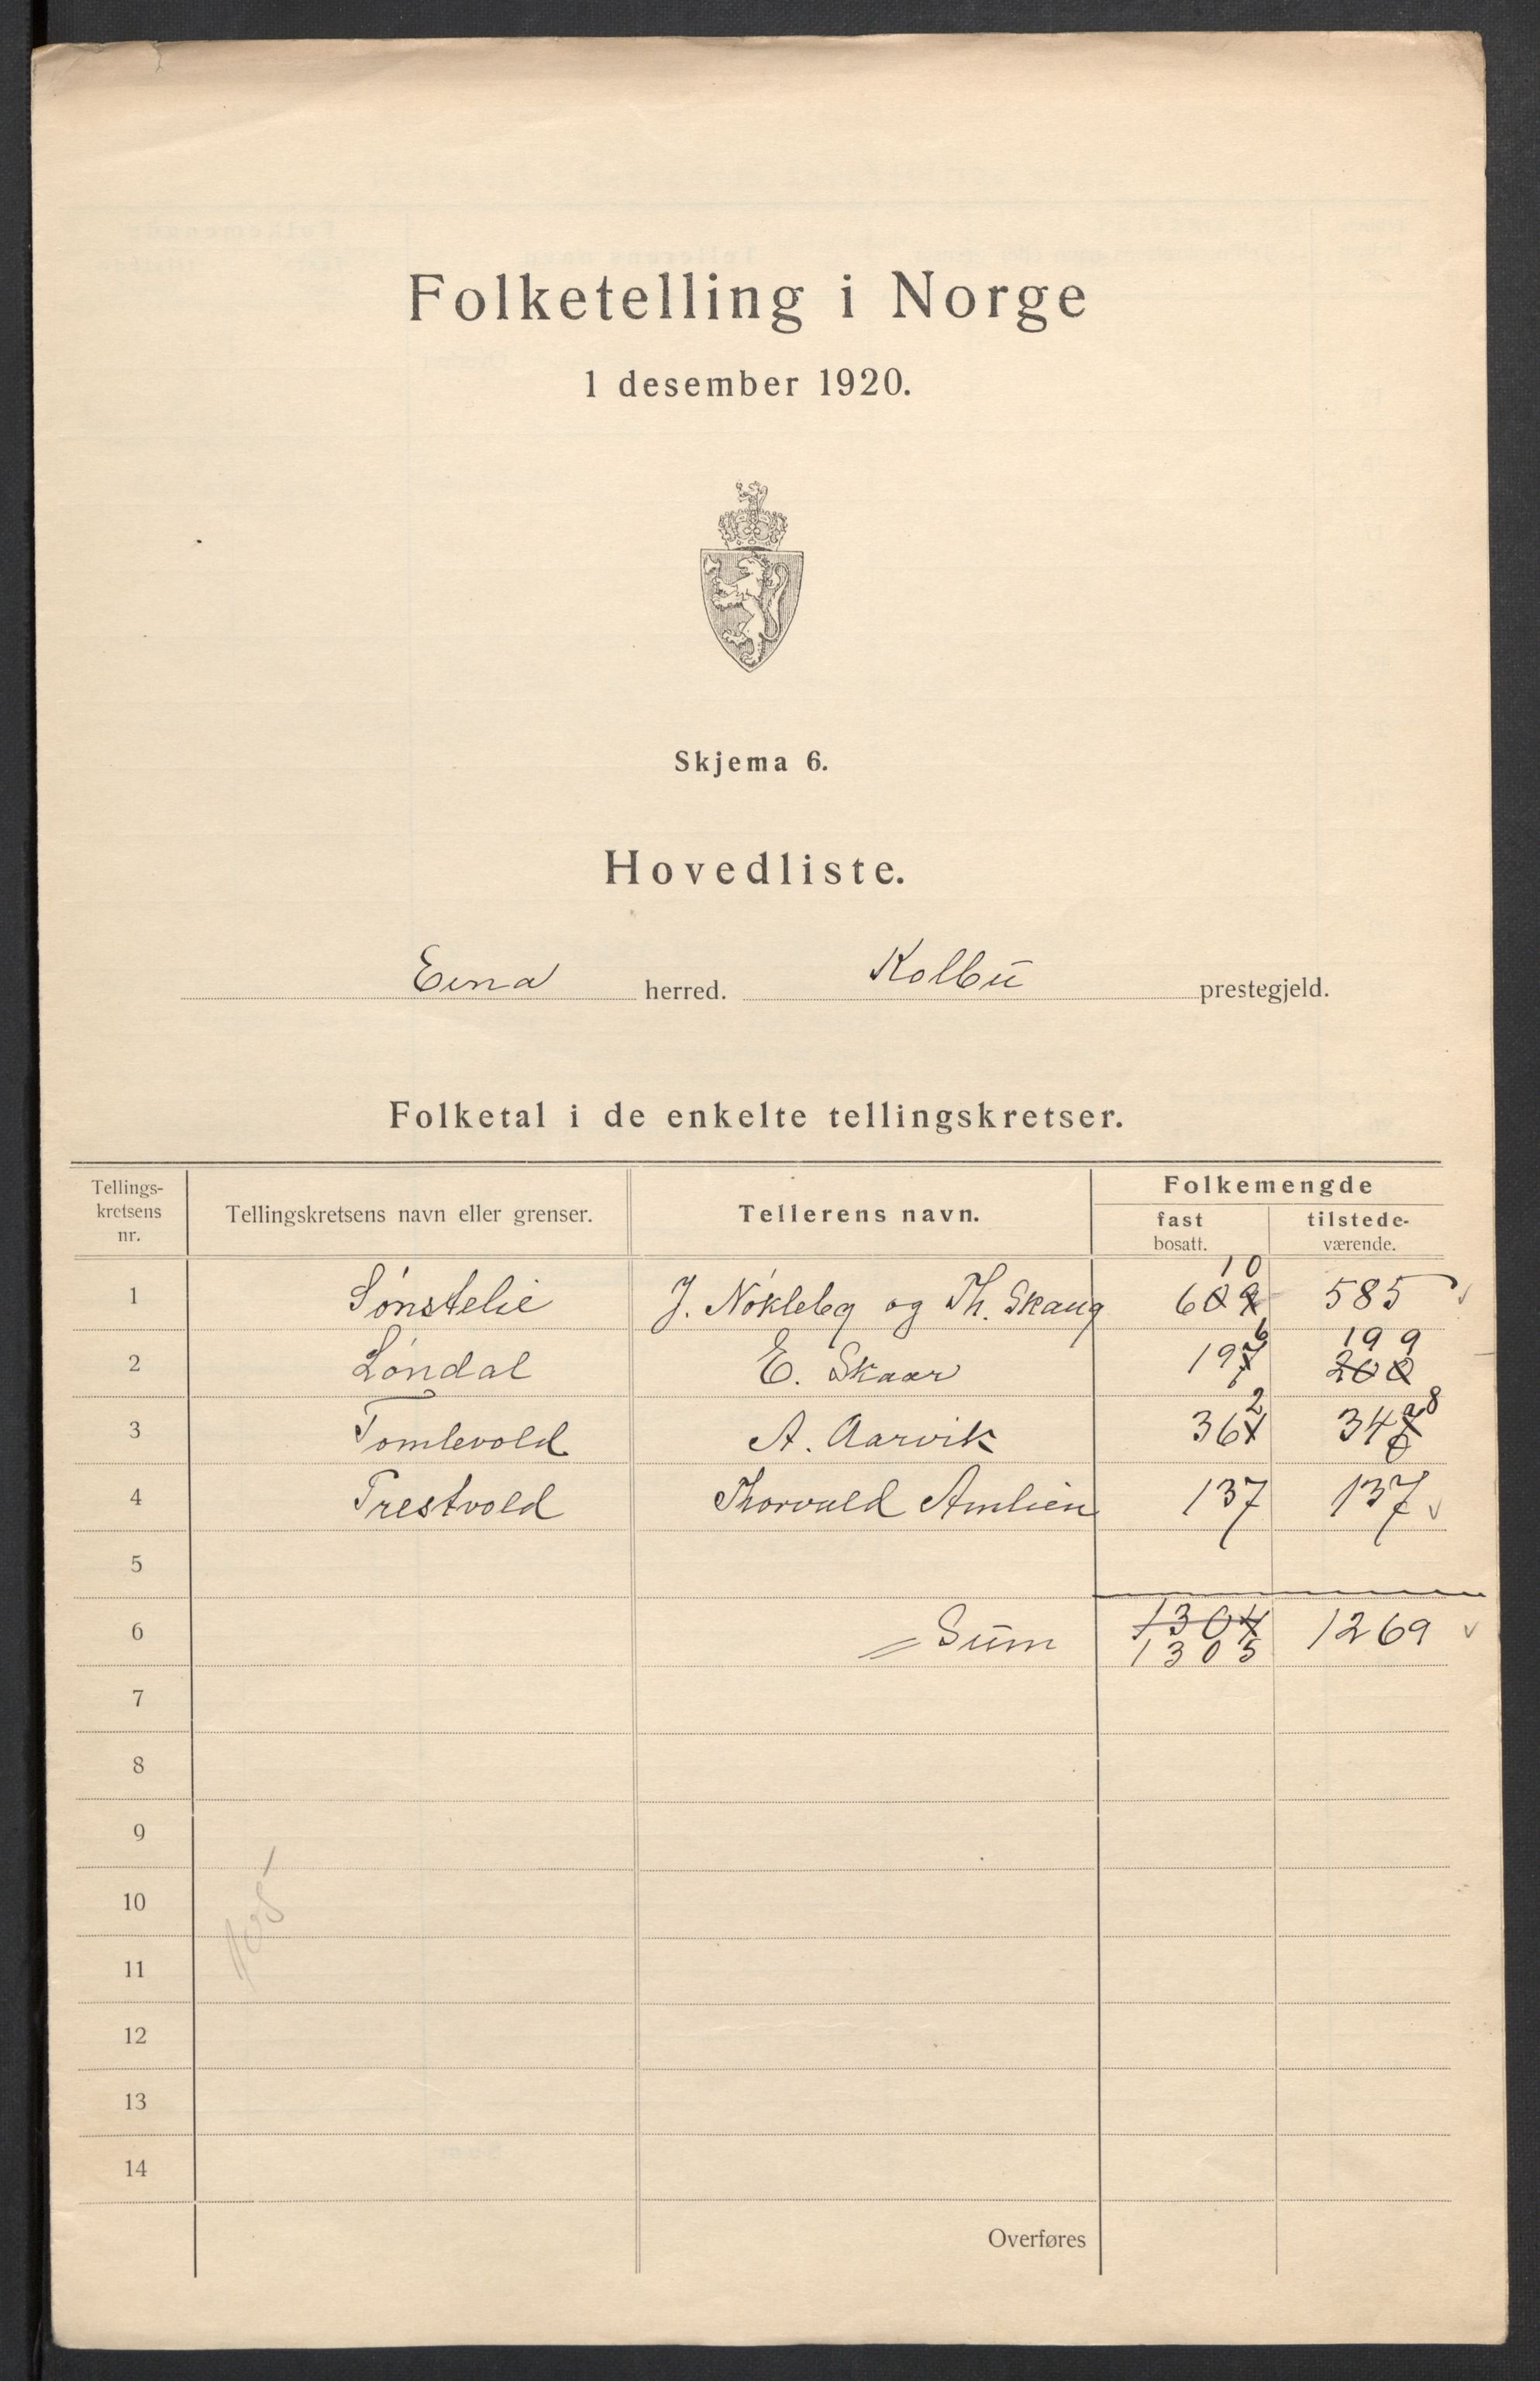 Folketelling i Norge
1 desember 1920.
Skjema 6.
Hovedliste.
Eina herred. Kolbu prestegjeld.
Folketal i de enkelte tellingskretser.
Tellings-
kretsens
nr.
Tellingskretsens navn eller grenser.
Tellerens navn.
Folkemengde
fast
bosatt.
tilstede-
værende.
10
1 Sønstelie J. Nøklebg og Th. Skaug 609 585
6 199
2 Løndal E. Skaar 197 200
2 8
3 Tomlevold A. Aarvik 364 347
4 Trestvold Thorvald Amlien 137 137
5
6 Sum 1304 1269
1305
7
8
9
10
11
12
13
14
Overføres